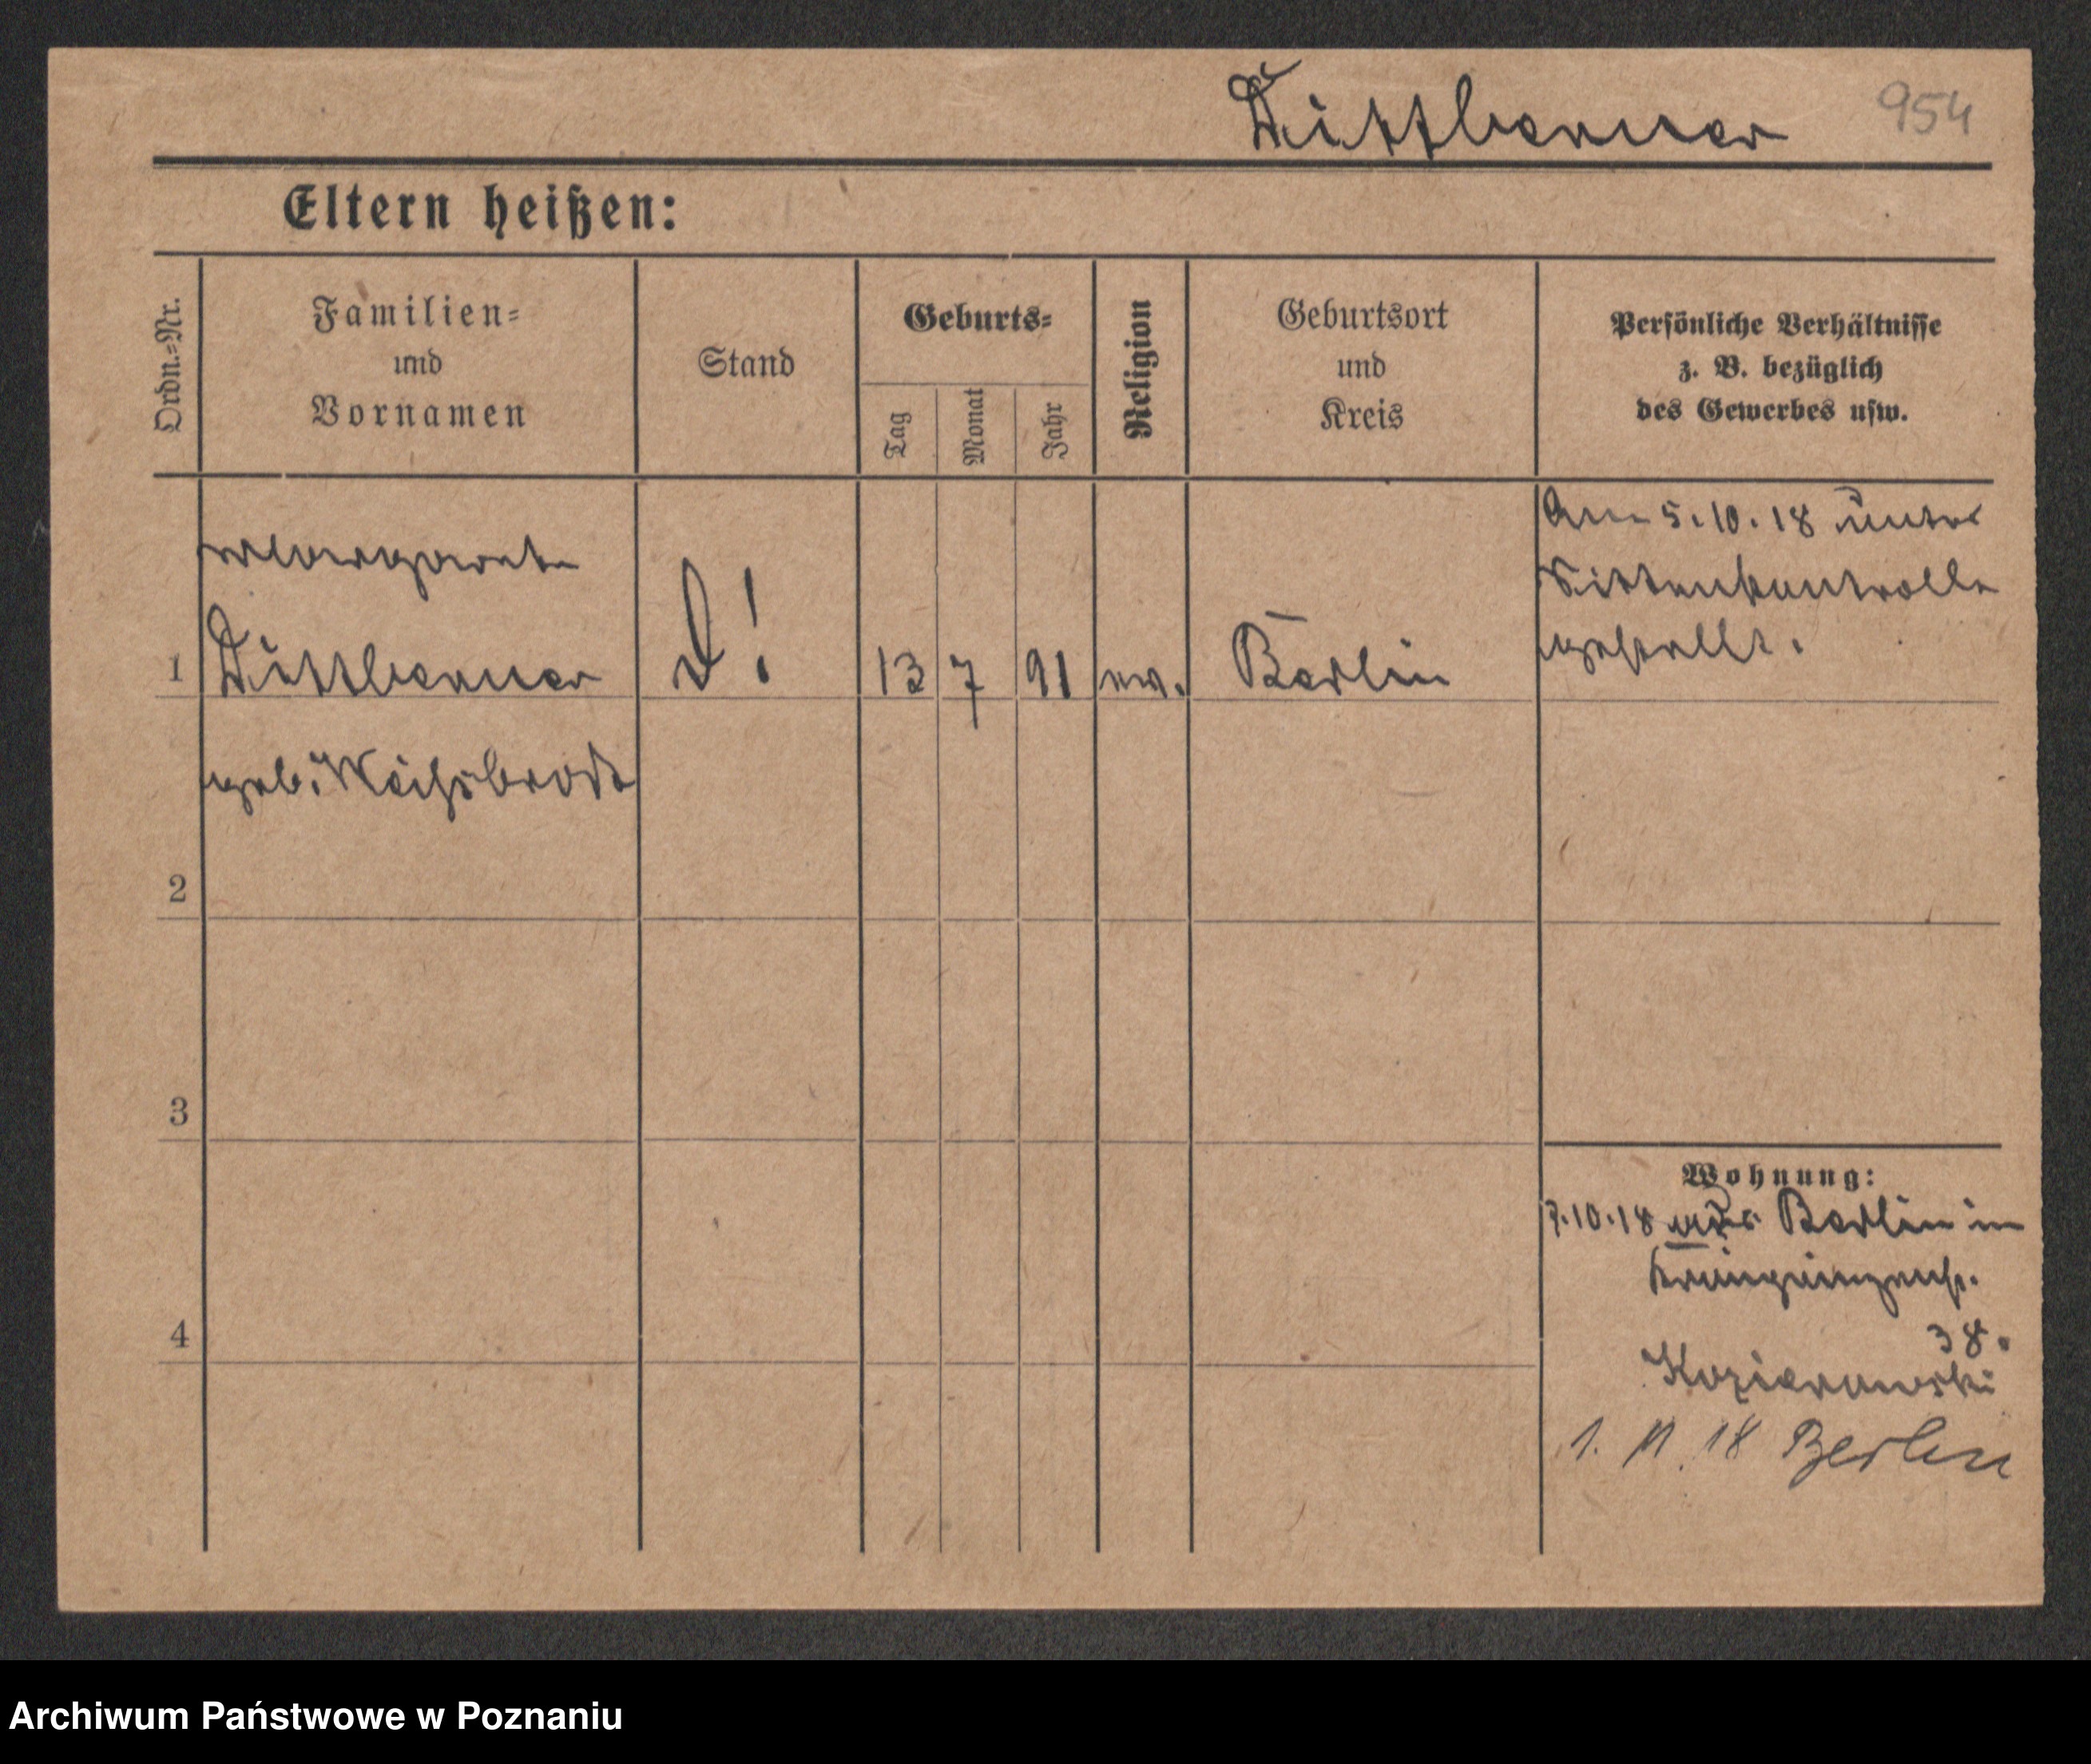 Düttbenner 954
Eltern heißen:
Ordn.=Nr.
Familien=
und
Vornamen
Stand
Geburts=
Tag
Monat
Jahr
Religion
Geburtsort
und
Kreis
Persönliche Verhältnisse
z. B. bezüglich
des Gewerbes usw.
Margarete
1 Düttbenner 13 7 91 ev. Berlin
geb. Weißbrodt
Am 5.10.18 unter
Sittenkontrolle
gestellt.
2
3
4
Wohnung:
7.10.18 aus Berlin im
38.
Kozierowski
1. 11. 18 Berlin
Archiwum Państwowe w Poznaniu